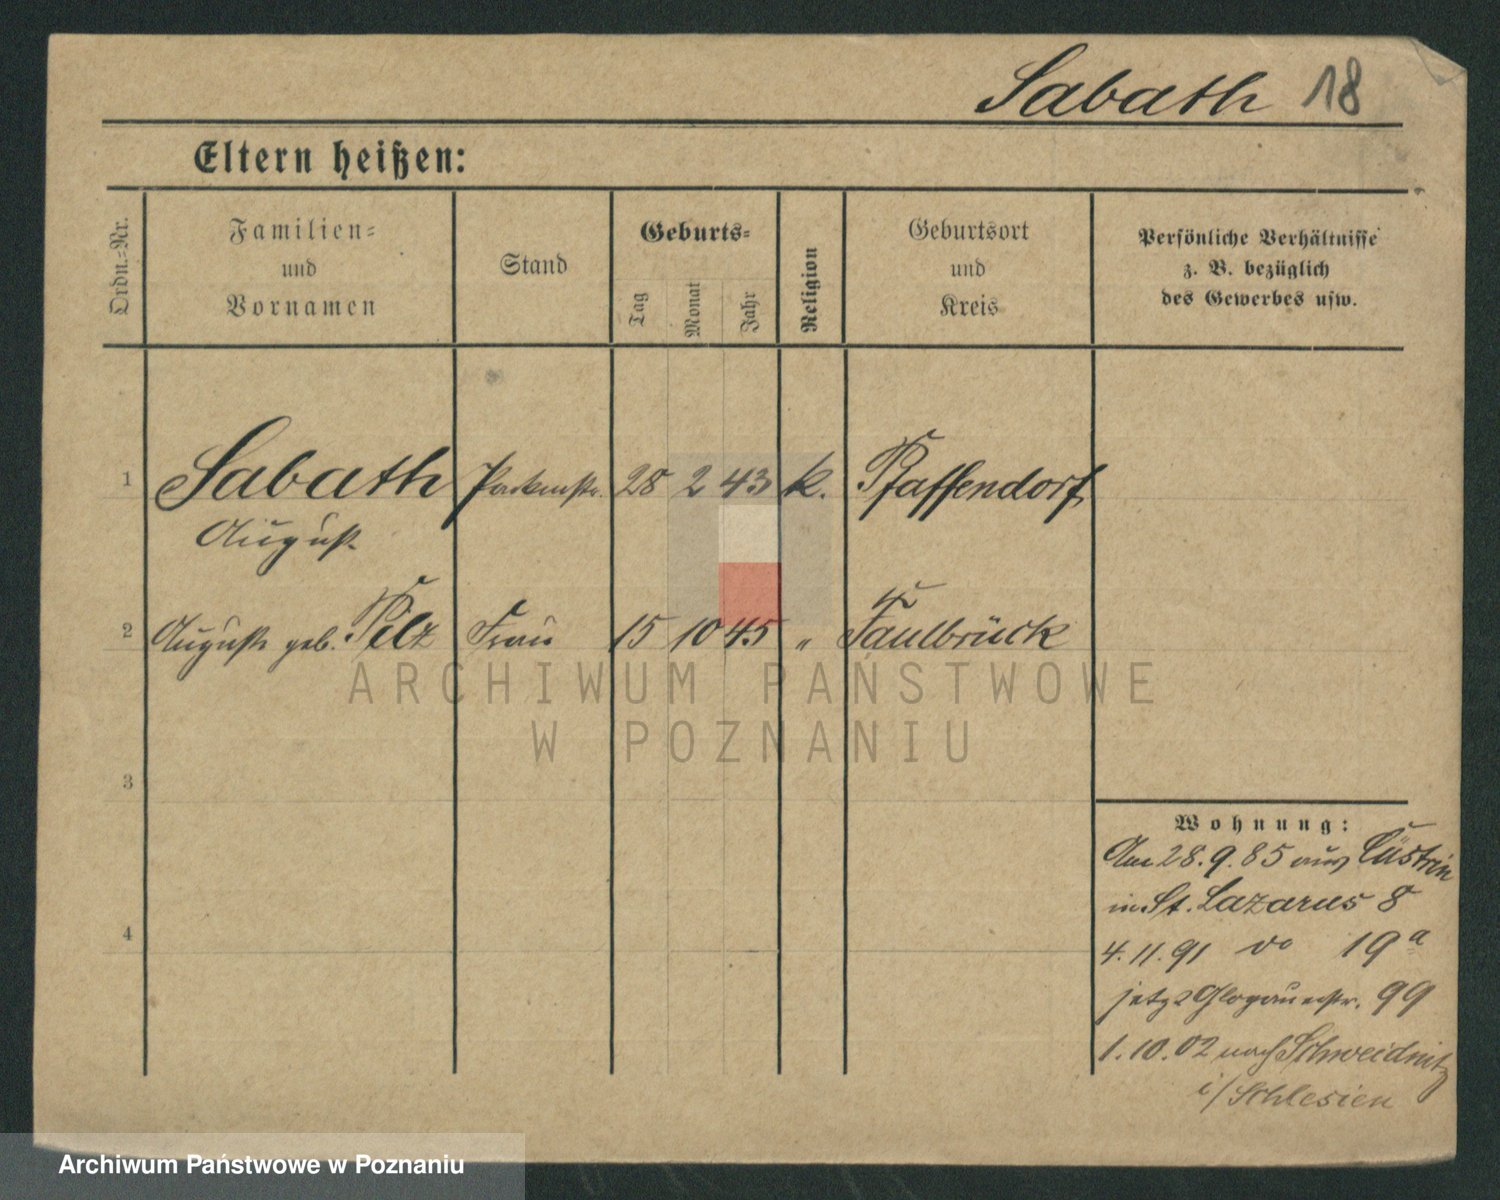 Sabath 18
Eltern heißen:
Ordn.-Nr.
Familien-
und
Vornamen
Stand
Geburts-
Tag
Monat
Jahr
Religion
Geburtsort
und
Kreis
Persönliche Verhältnisse
z. B. bezüglich
des Gewerbes usw.
1 Sabath Packmstr. 28 2 43 k. Pfaffendorf
August
2 Auguste geb. Pilz Frau 15 10 45 " Faulbrück
3
4
Wohnung:
Am 28.9.85 aus Cüstrin
in St. Lazarus 8
4.11.91 do 19a
jetzt Glogauerstr. 99
1.10.02 nach Schweidnitz
i/Schlesien
ARCHIWUM PAŃSTWOWE
W POZNANIU
Archiwum Państwowe w Poznaniu